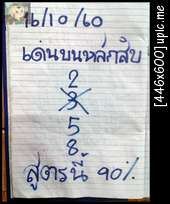 16/10/60
เด่นบนหลักสิบ
2
3
5
8
สูตรนี้ 90%
[446x600] upic.me